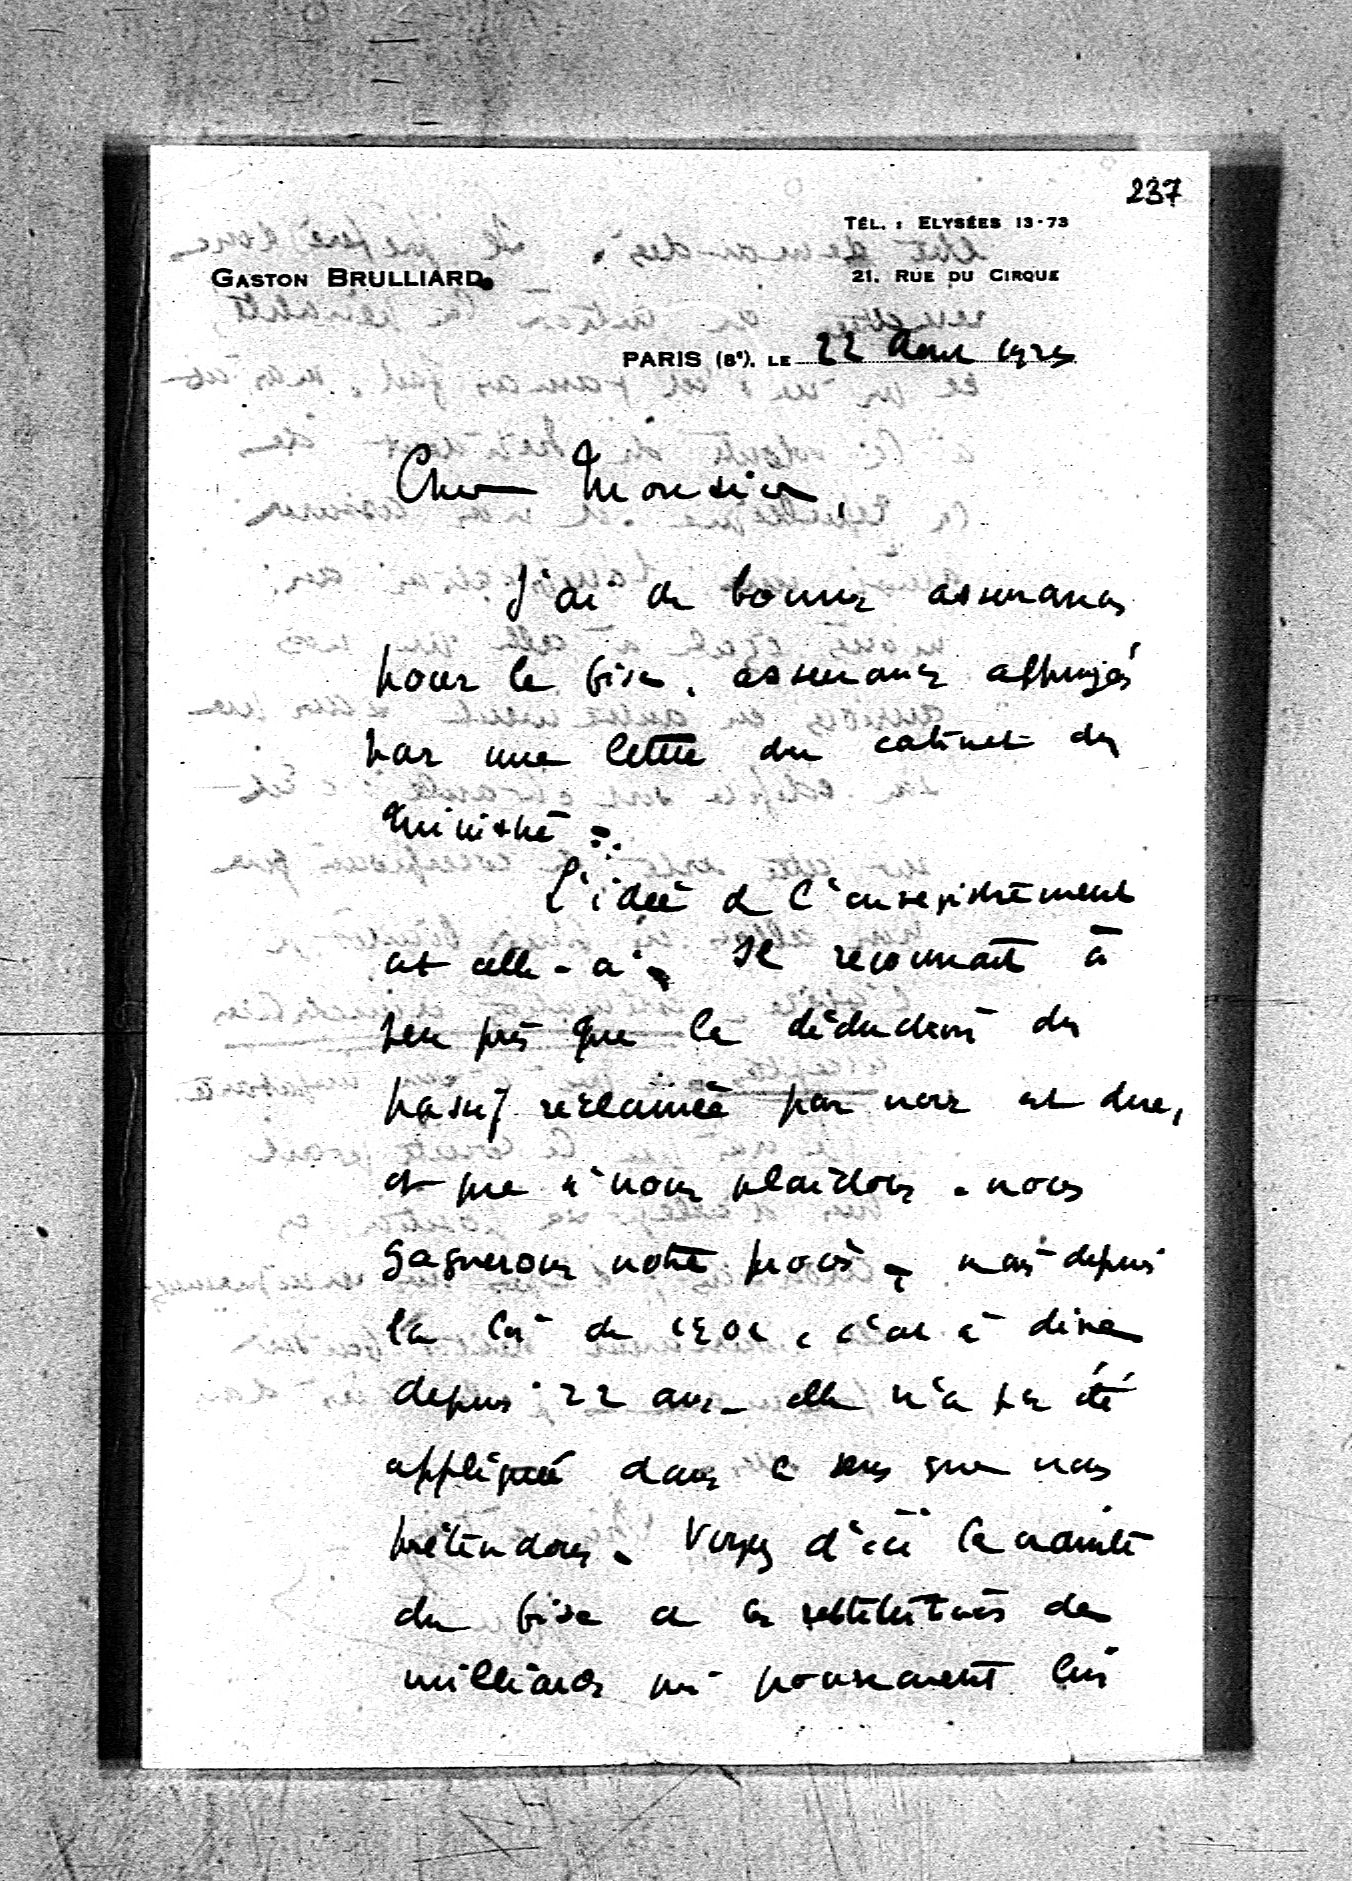 237
TÉL. : ELYSÉES 13-73
GASTON BRULLIARD
21, RUE DU CIRQUE
PARIS (8e), LE 22 Aout 1923
Cher Monsieur
J'ai de bonnes assurances
pour le fisc, assurances appuyées
par une lettre du cabinet du
Ministre.
L'idée de l'enregistrement
est celle-ci. Il reconnait à
peu près que la déduction du
passif réclamée par nous est due,
et que si nous plaidons, nous
gagnerons notre procès, mais depuis
la loi de 1901, c'est à dire
depuis 22 ans, elle n'a pas été
appliquée dans le sens que nous
prétendons. Voyez d'ici la crainte
du fisc et les restitutions de
milliards qui pourraient lui